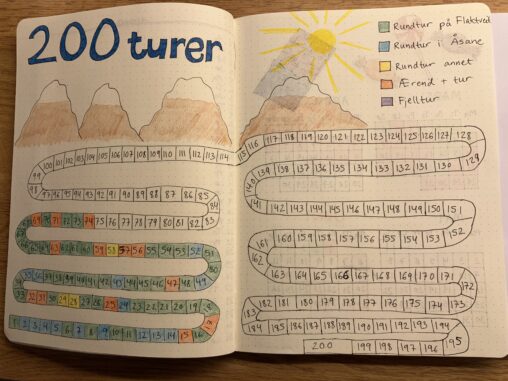 200 turer
Rundtur på Flaktveit
Rundtur i Åsane
Rundtur annet
Ærend + tur
Fjelltur
115 116 117 118 119 120 121 122 123 124 125 126 127 128
129
139 138 137 136 135 134 133 132 131 130
140
141 142 143 144 145 146 147 148 149 150 151
161 160 159 158 157 156 155 154 153 152
162
163 164 165 166 167 168 169 170 171
172
183 182 181 180 179 178 177 176 175 174 173
184 185 186 187 188 189 190 191 192 193 194
195
200 199 198 197 196
100 102 104 105 106 107 108 109 110 111 112 113 114
99
98 97 96 95 94 93 92 91 90 89 88 87 86 85
84
69 71 72 73 74 75 76 77 78 79 80 81 82 83
65 64 63 62 61 60 59 58 57 56 55 54 53 52
43 44 45 46 47 48 49
33 32 31 30 29 28 27 26 25 24 23 22 21 20 19
1 2 3 4 5 6 7 8 9 10 11 12 13 14 15 16